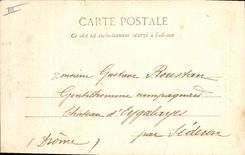 CARTE POSTALE
Ce côté est exclusivement réservé à l'adresse
Monsieur Gustave Roustan
Gentilhomme campagnard
Château d'Eygalayes
par Séderon
(Drôme)